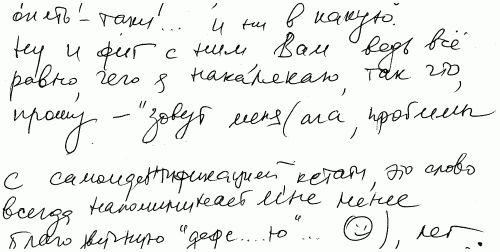 опять-таки!... и ни в какую.
ну и фиг с ним, Вам ведь всё
равно, чего я накалякаю, так что,
прошу, – "зовут меня (ага, проблемы
с самоидентификацией кстати, это слово
всегда напоминает мне менее
благозвучную "дефе.....ю"... ☺), лет